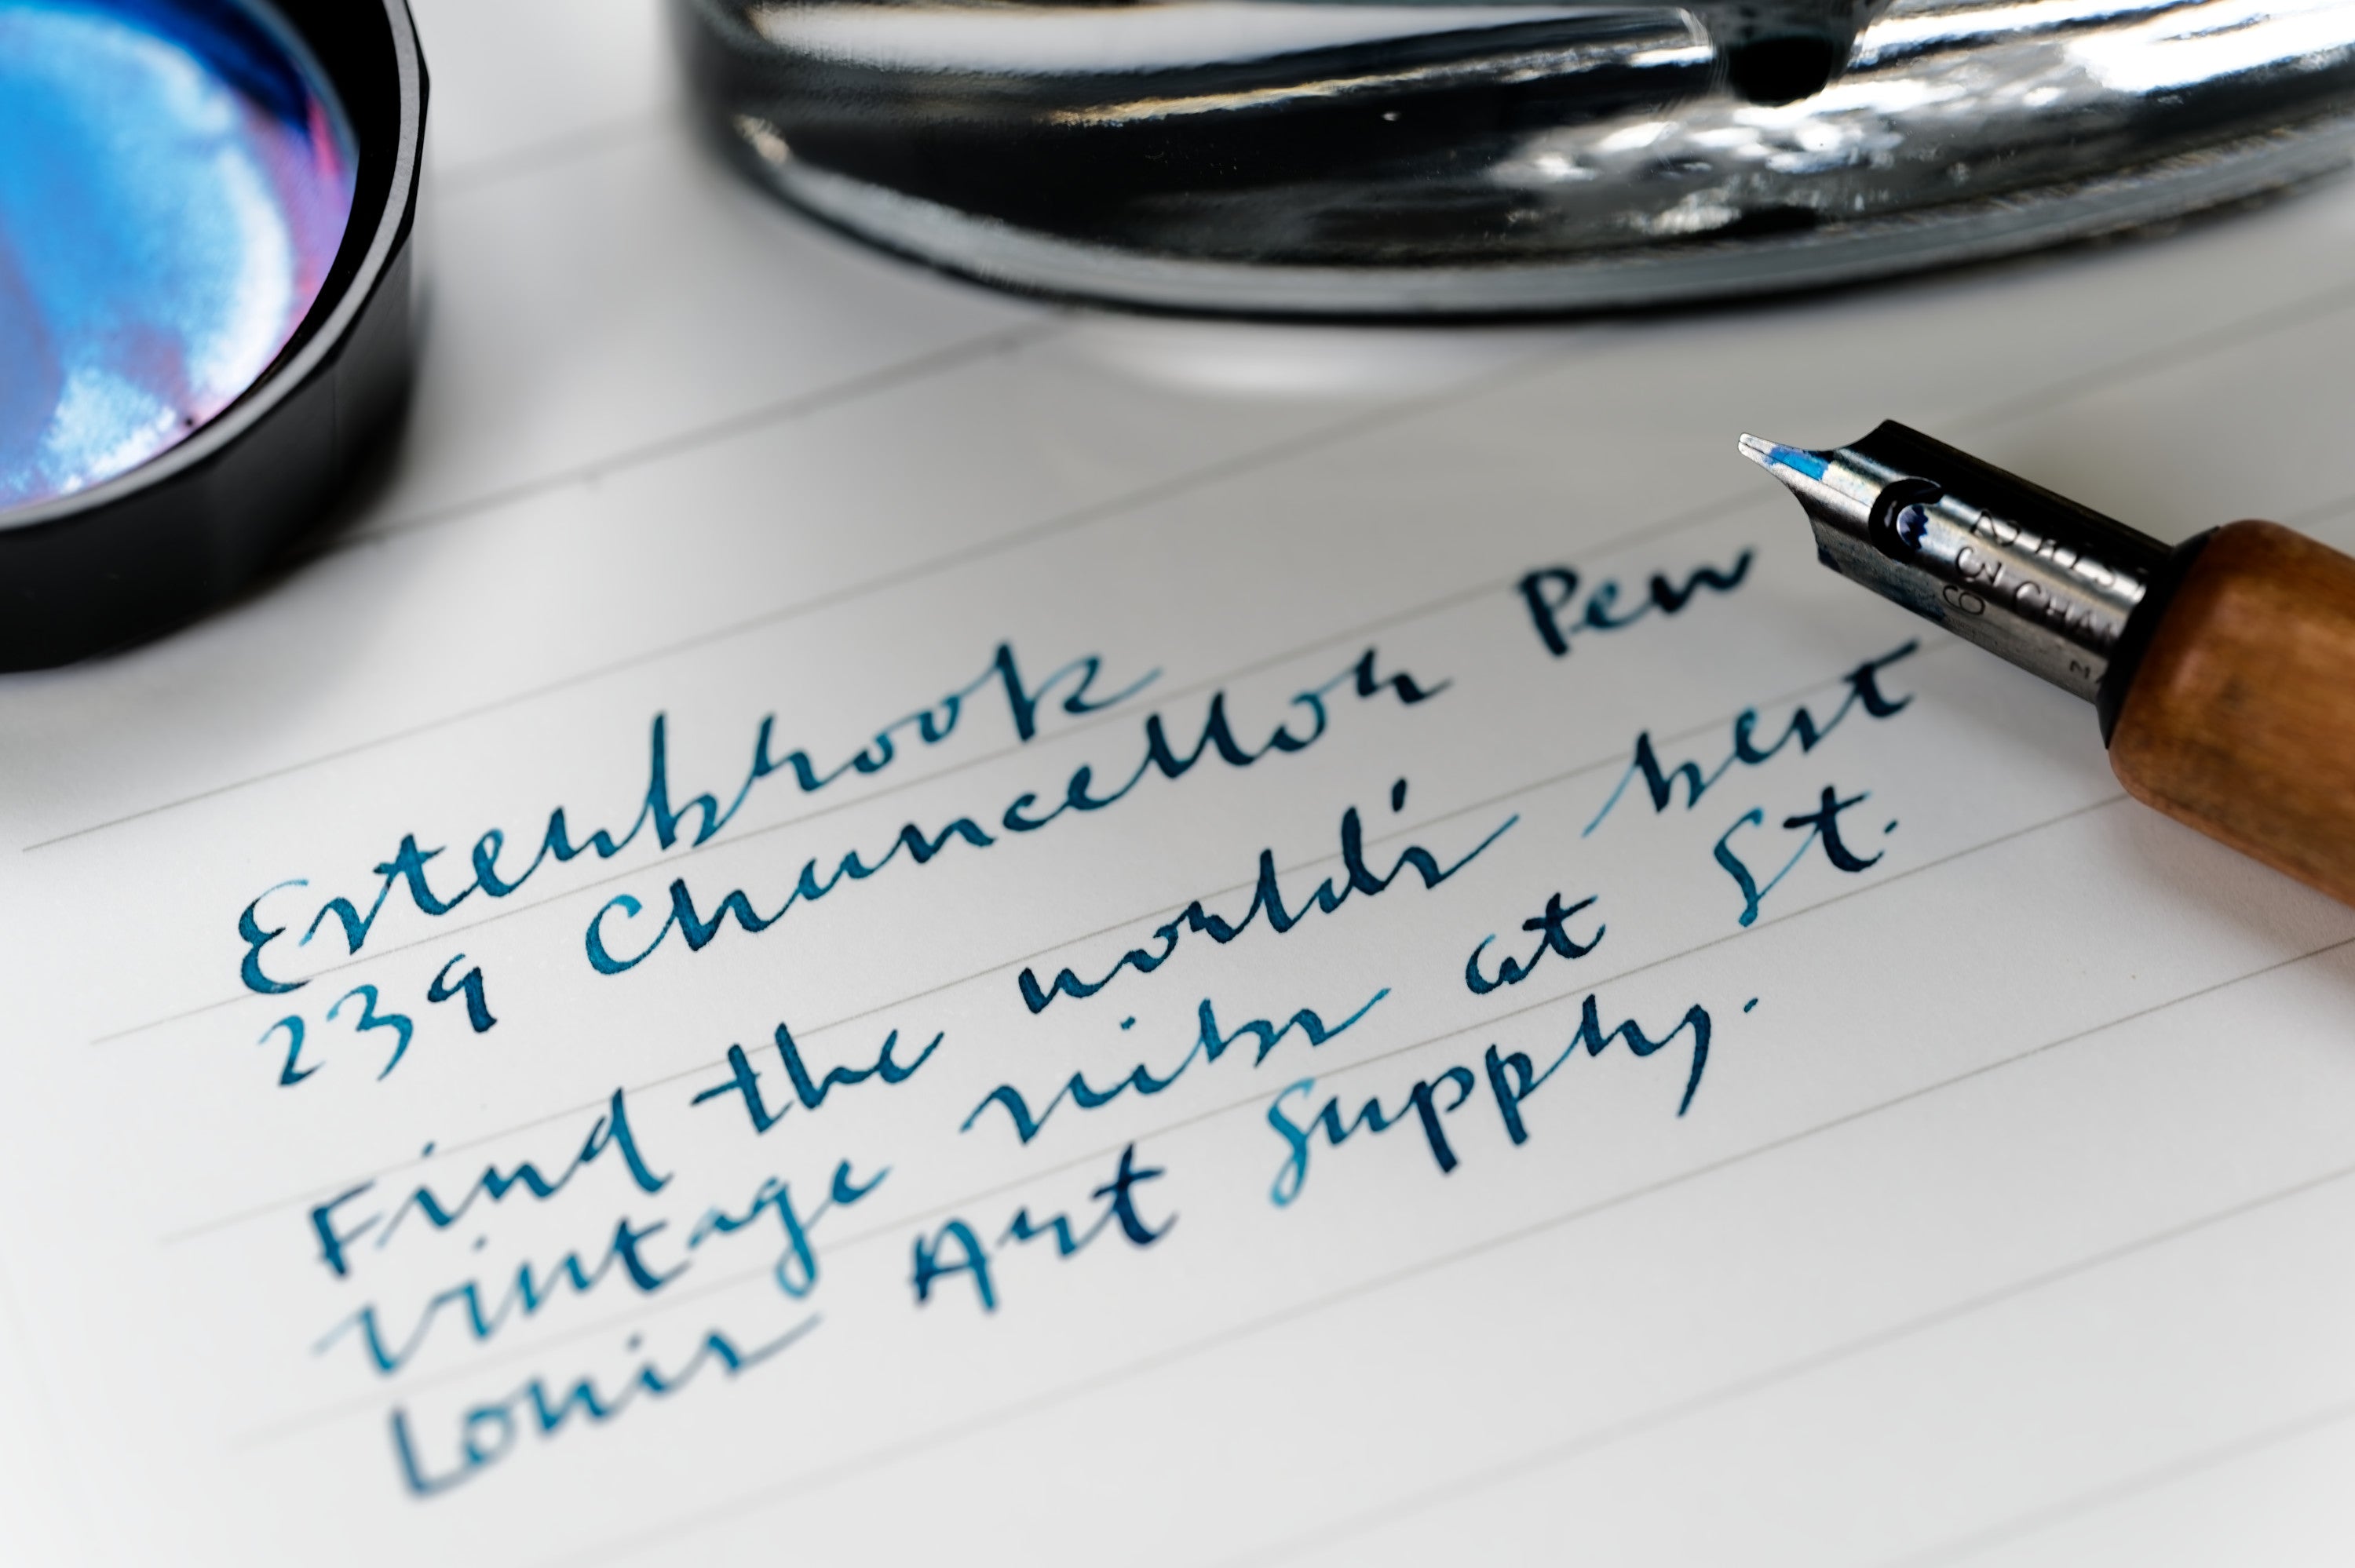 Esterbrook
239 Chancellor Pen
Find the world's best
vintage nibs at St.
Louis Art Supply.
239
CHAN